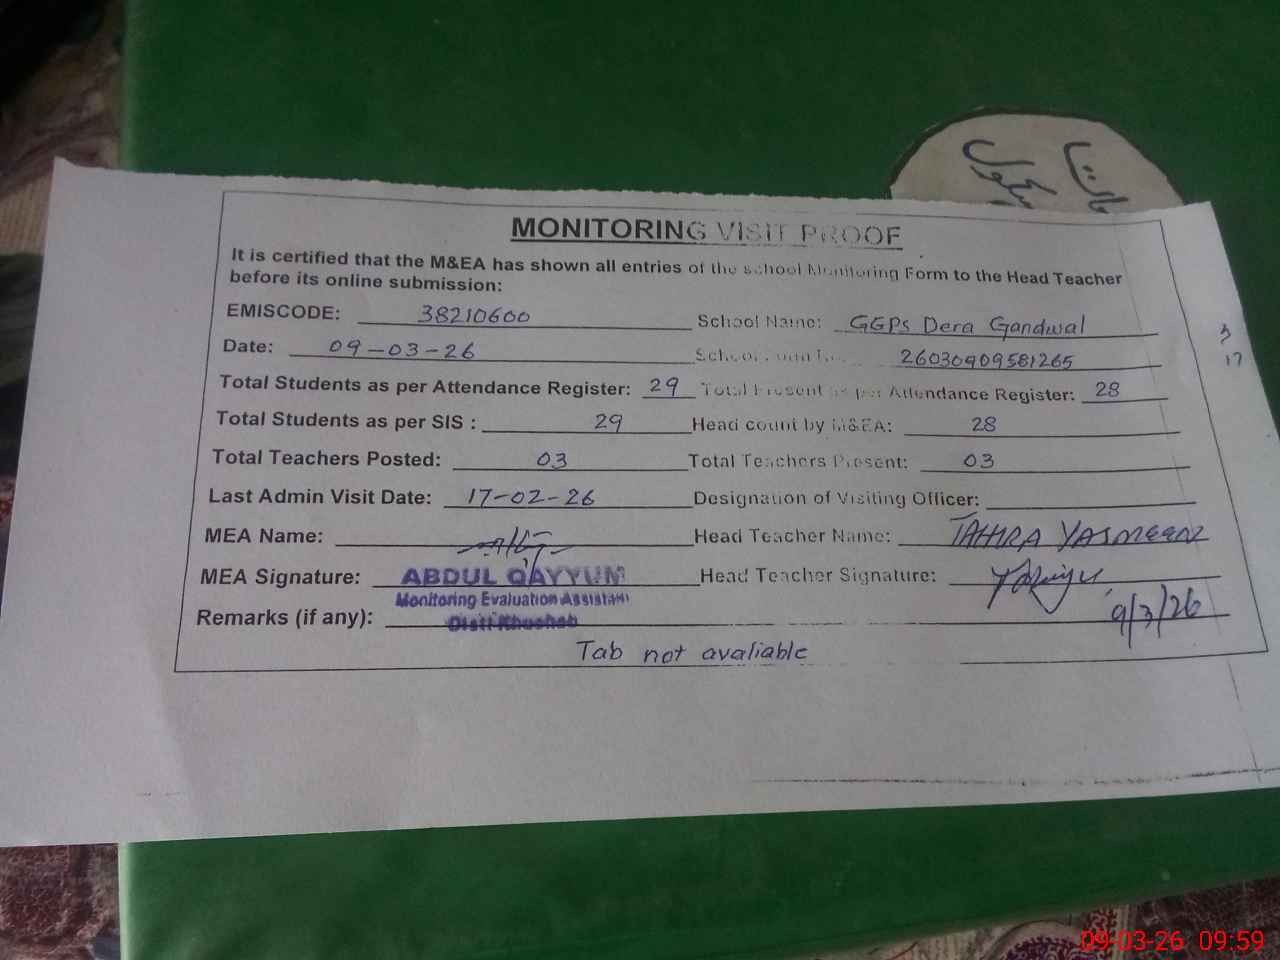 عائشہ
سکول
MONITORING VISIT PROOF
It is certified that the M&EA has shown all entries of the school Monitoring Form to the Head Teacher
before its online submission:
EMISCODE: 38210600 School Name: GGPS Dera Gandwal
Date: 09-03-26 School 26030909581265
Total Students as per Attendance Register: 29 Total Present as per Attendance Register: 28
Total Students as per SIS : 29 Head count by M&EA: 28
Total Teachers Posted: 03 Total Teachers Present: 03
Last Admin Visit Date: 17-02-26 Designation of Visiting Officer:
MEA Name: Head Teacher Name: TAHIRA YASMEEN
MEA Signature: ABDUL QAYYUM Head Teacher Signature:
Monitoring Evaluation Assistant
Remarks (if any): Distt Khushab 9/3/26
Tab not avaliable
3
17
09-03-26 09:59